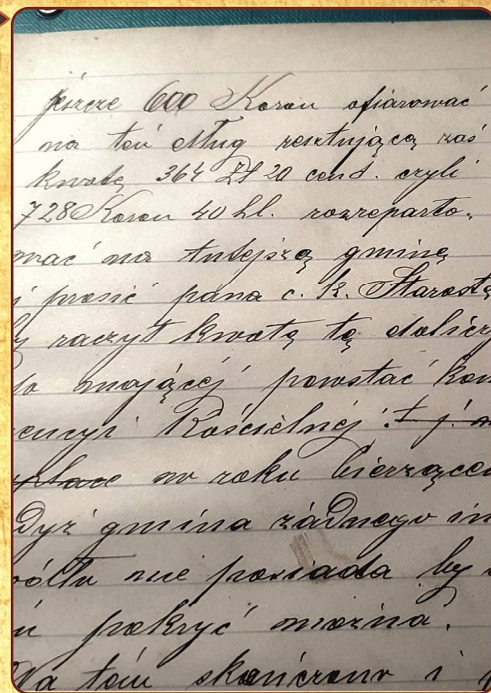 jeszcze 600 Koron ofiarować
na ten dług resztującą zaś
kwotę 364 Zł 20 cend. czyli
728 Koron 40 hl. rozreparto-
wać na tutejszą gminę
i prosić pana c. k. Starostę
raczył kwotę tę dolicz
do mającéj powstać kon
Kościelnéj t. j.
w roku bierzące
Dyż gmina żadnego in
nie posiada by
pokryć można.
Na tem skończono i